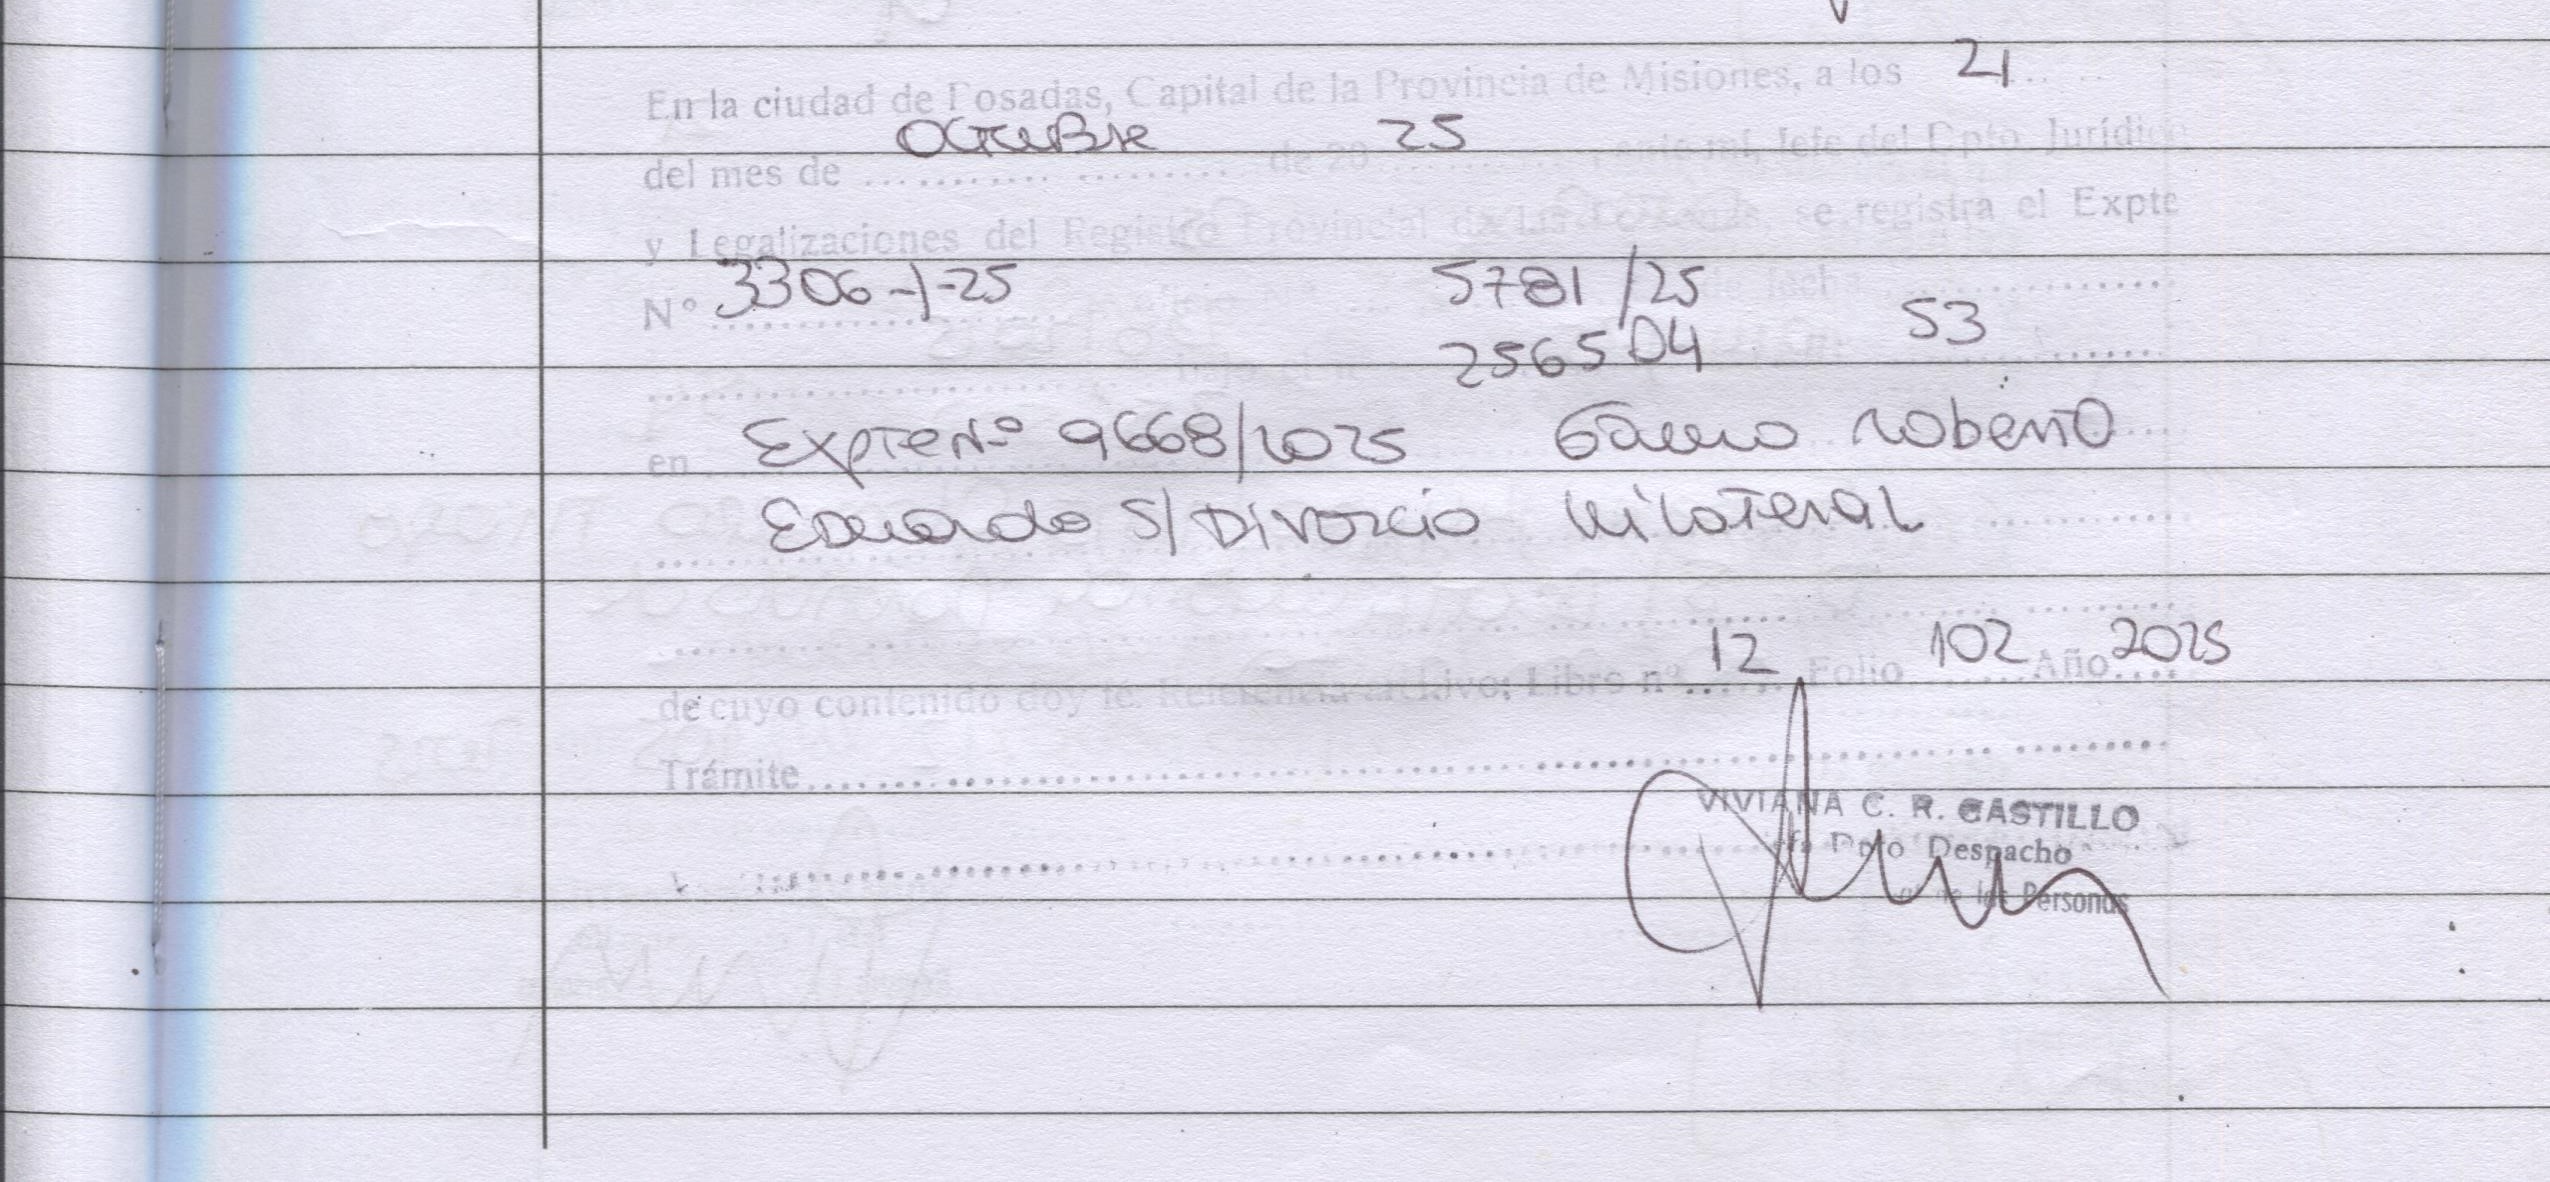 En la ciudad de Posadas, Capital de la Provincia de Misiones, a los 21
del mes de Octubre de 20 25, ante mi, Jefe del Dpto. Jurídico
y Legalizaciones del Registro Provincial de las Personas, se registra el Expte
Nº 3306-1-25 5781/25 de fecha
256504 53
en Expte Nº 9668/2025 roberto
Eduardo S/ Divorcio Unilateral
de cuyo contenido doy fe. Referencia archivo; Libro nº 12 Folio 102 Año 2025
Trámite
VIVIANA C. R. CASTILLO
Dpto Despacho
de las Personas